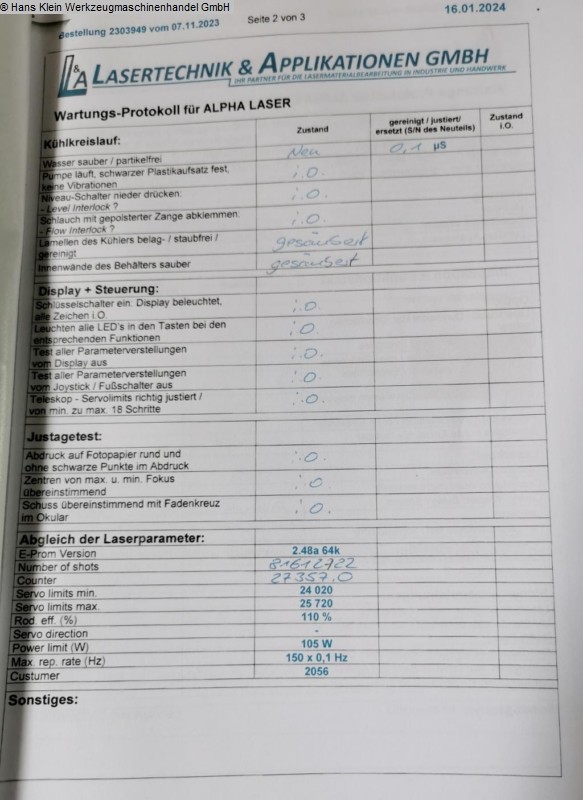 © Hans Klein Werkzeugmaschinenhandel GmbH
16.01.2024
Bestellung 2303949 vom 07.11.2023 Seite 2 von 3
L&A LASERTECHNIK & APPLIKATIONEN GMBH
IHR PARTNER FÜR DIE LASERMATERIALBEARBEITUNG IN INDUSTRIE UND HANDWERK
Wartungs-Protokoll für ALPHA LASER
Kühlkreislauf: Zustand gereinigt / justiert/ ersetzt (S/N des Neuteils) Zustand i.O.
Wasser sauber / partikelfrei Neu 0,1 µS
Pumpe läuft, schwarzer Plastikaufsatz fest,
keine Vibrationen i.O.
Niveau-Schalter nieder drücken:
- Level Interlock ? i.O.
Schlauch mit gepolsterter Zange abklemmen:
- Flow Interlock ? i.O.
Lamellen des Kühlers belag- / staubfrei /
gereinigt gesäubert
Innenwände des Behälters sauber gesäubert
Display + Steuerung:
Schlüsselschalter ein: Display beleuchtet,
alle Zeichen i.O. i.O.
Leuchten alle LED's in den Tasten bei den
entsprechenden Funktionen i.O.
Test aller Parameterverstellungen
vom Display aus i.O.
Test aller Parameterverstellungen
vom Joystick / Fußschalter aus i.O.
Teleskop - Servolimits richtig justiert /
von min. zu max. 18 Schritte i.O.
Justagetest:
Abdruck auf Fotopapier rund und
ohne schwarze Punkte im Abdruck i.O.
Zentren von max. u. min. Fokus
übereinstimmend i.O.
Schuss übereinstimmend mit Fadenkreuz
im Okular i.O.
Abgleich der Laserparameter:
E-Prom Version 2.48a 64k
Number of shots 81612722
Counter 27357.0
Servo limits min. 24 020
Servo limits max. 25 720
Rod. eff. (%) 110 %
Servo direction -
Power limit (W) 105 W
Max. rep. rate (Hz) 150 x 0,1 Hz
Custumer 2056
Sonstiges: